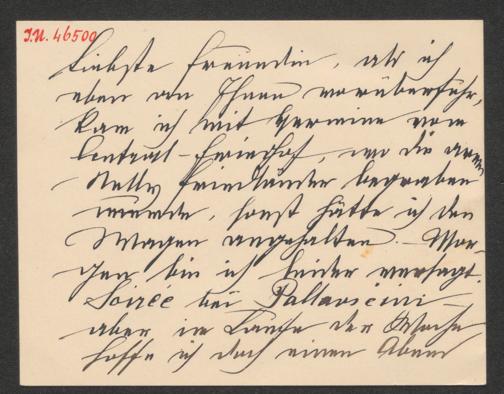 I.N. 46500
Liebste Freundin, als ich
eben von Ihnen vorüberfuhr,
kam ich mit Hermine vom
Central-Friedhof, wo die arme
Nelly Friedländer begraben
wurde, sonst hätte ich den
Wagen angehalten. – Mor-
gen bin ich leider versagt.
Soirée bei Pallavicini –
aber im Laufe der Woche
hoffe ich doch einen Abend